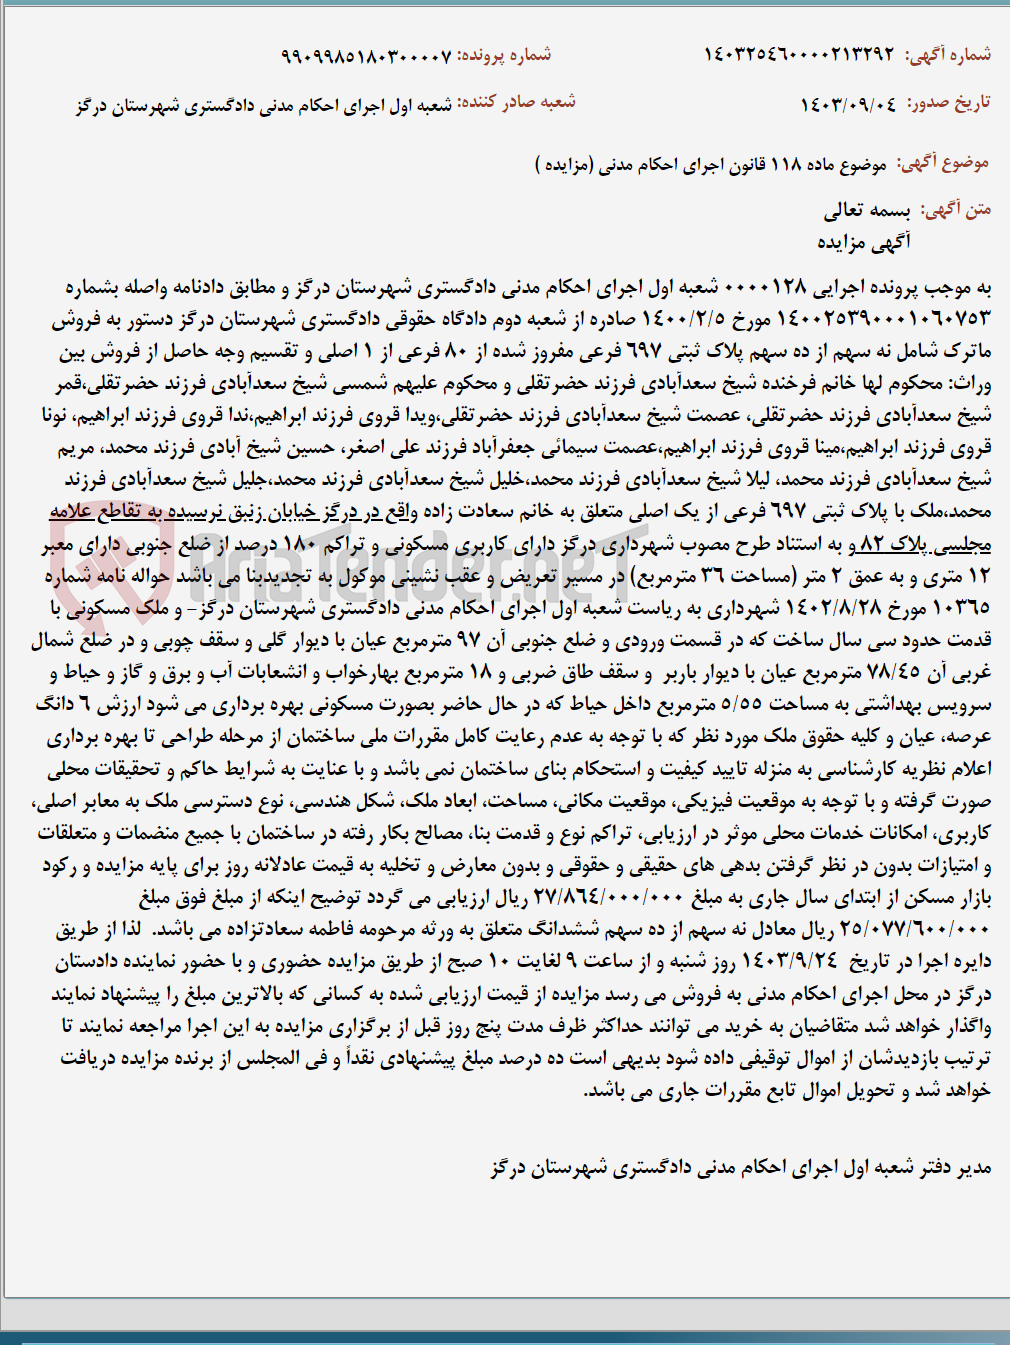 شماره آگهی: ۱۴۰۳۲۵۴۶۰۰۰۰۲۱۳۲۹۲ شماره پرونده: ۹۹۰۹۹۸۵۱۸۰۳۰۰۰۰۷
تاریخ صدور: ۱۴۰۳/۰۹/۰۴ شعبه صادر کننده: شعبه اول اجرای احکام مدنی دادگستری شهرستان درگز
موضوع آگهی: موضوع ماده ۱۱۸ قانون اجرای احکام مدنی (مزایده )
متن آگهی: بسمه تعالی
آگهی مزایده
به موجب پرونده اجرایی ۰۰۰۰۱۲۸ شعبه اول اجرای احکام مدنی دادگستری شهرستان درگز و مطابق دادنامه واصله بشماره
۱۴۰۰۲۵۳۹۰۰۰۱۰۶۰۷۵۳ مورخ ۱۴۰۰/۲/۵ صادره از شعبه دوم دادگاه حقوقی دادگستری شهرستان درگز دستور به فروش
ماترک شامل نه سهم از ده سهم پلاک ثبتی ۶۹۷ فرعی مفروز شده از ۸۰ فرعی از ۱ اصلی و تقسیم وجه حاصل از فروش بین
وراث: محکوم لها خانم فرخنده شیخ سعدآبادی فرزند حضرتقلی و محکوم علیهم شمسی شیخ سعدآبادی فرزند حضرتقلی،قمر
شیخ سعدآبادی فرزند حضرتقلی، عصمت شیخ سعدآبادی فرزند حضرتقلی،ویدا قروی فرزند ابراهیم،ندا قروی فرزند ابراهیم، نونا
قروی فرزند ابراهیم،مینا قروی فرزند ابراهیم،عصمت سیمائی جعفرآباد فرزند علی اصغر، حسین شیخ آبادی فرزند محمد، مریم
شیخ سعدآبادی فرزند محمد، لیلا شیخ سعدآبادی فرزند محمد،خلیل شیخ سعدآبادی فرزند محمد،جلیل شیخ سعدآبادی فرزند
محمد،ملک با پلاک ثبتی ۶۹۷ فرعی از یک اصلی متعلق به خانم سعادت زاده واقع در درگز خیابان زنبق نرسیده به تقاطع علامه
مجلسی پلاک ۸۲ و به استناد طرح مصوب شهرداری درگز دارای کاربری مسکونی و تراکم ۱۸۰ درصد از ضلع جنوبی دارای معبر
۱۲ متری و به عمق ۲ متر (مساحت ۳۶ مترمربع) در مسیر تعریض و عقب نشینی موکول به تجدیدبنا می باشد حواله نامه شماره
۱۰۳۶۵ مورخ ۱۴۰۲/۸/۲۸ شهرداری به ریاست شعبه اول اجرای احکام مدنی دادگستری شهرستان درگز- و ملک مسکونی با
قدمت حدود سی سال ساخت که در قسمت ورودی و ضلع جنوبی آن ۹۷ مترمربع عیان با دیوار گلی و سقف چوبی و در ضلع شمال
غربی آن ۷۸/۴۵ مترمربع عیان با دیوار باربر و سقف طاق ضربی و ۱۸ مترمربع بهارخواب و انشعابات آب و برق و گاز و حیاط و
سرویس بهداشتی به مساحت ۵/۵۵ مترمربع داخل حیاط که در حال حاضر بصورت مسکونی بهره برداری می شود ارزش ۶ دانگ
عرصه، عیان و کلیه حقوق ملک مورد نظر که با توجه به عدم رعایت کامل مقررات ملی ساختمان از مرحله طراحی تا بهره برداری
اعلام نظریه کارشناسی به منزله تایید کیفیت و استحکام بنای ساختمان نمی باشد و با عنایت به شرایط حاکم و تحقیقات محلی
صورت گرفته و با توجه به موقعیت فیزیکی، موقعیت مکانی، مساحت، ابعاد ملک، شکل هندسی، نوع دسترسی ملک به معابر اصلی،
کاربری، امکانات خدمات محلی موثر در ارزیابی، تراکم نوع و قدمت بنا، مصالح بکار رفته در ساختمان با جمیع منضمات و متعلقات
و امتیازات بدون در نظر گرفتن بدهی های حقیقی و حقوقی و بدون معارض و تخلیه به قیمت عادلانه روز برای پایه مزایده و رکود
بازار مسکن از ابتدای سال جاری به مبلغ ۲۷/۸۶۴/۰۰۰/۰۰۰ ریال ارزیابی می گردد توضیح اینکه از مبلغ فوق مبلغ
۲۵/۰۷۷/۶۰۰/۰۰۰ ریال معادل نه سهم از ده سهم ششدانگ متعلق به ورثه مرحومه فاطمه سعادتزاده می باشد. لذا از طریق
دایره اجرا در تاریخ ۱۴۰۳/۹/۲۴ روز شنبه و از ساعت ۹ لغایت ۱۰ صبح از طریق مزایده حضوری و با حضور نماینده دادستان
درگز در محل اجرای احکام مدنی به فروش می رسد مزایده از قیمت ارزیابی شده به کسانی که بالاترین مبلغ را پیشنهاد نمایند
واگذار خواهد شد متقاضیان به خرید می توانند حداکثر ظرف مدت پنج روز قبل از برگزاری مزایده به این اجرا مراجعه نمایند تا
ترتیب بازدیدشان از اموال توقیفی داده شود بدیهی است ده درصد مبلغ پیشنهادی نقداً و فی المجلس از برنده مزایده دریافت
خواهد شد و تحویل اموال تابع مقررات جاری می باشد.
مدیر دفتر شعبه اول اجرای احکام مدنی دادگستری شهرستان درگز
AriaTender.neT